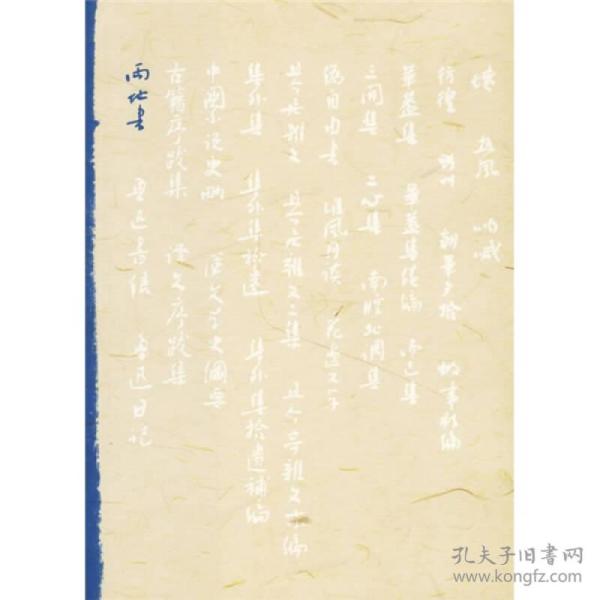 坟 热风 呐喊
彷徨 野草 朝華夕拾 故事新編
華蓋集 華蓋集续編 而已集
三閒集 二心集 南腔北调集
偽自由書 准风月谈 花边文学
且介亭雜文 且介亭雜文二集 且介亭雜文末编
集外集 集外集拾遗 集外集拾遺補编
中國小说史略 汉文学史纲要
古籍序跋集 译文序跋集
两地書 魯迅書信 魯迅日记
孔夫子旧书网
www.kongfz.com